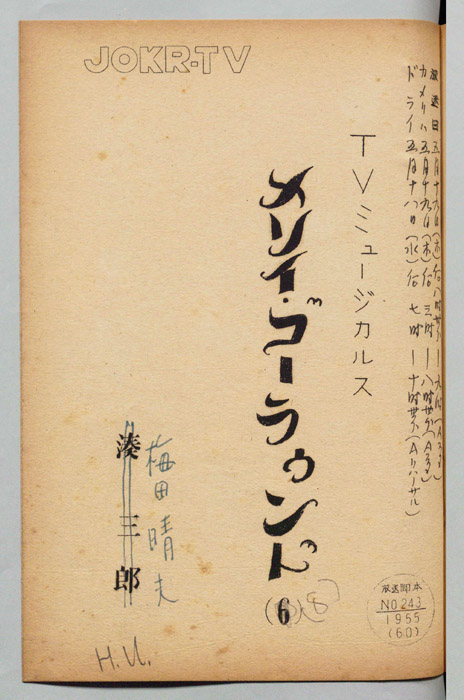 JOKR-TV
放送日 五月十九日(木)后八時サ分ー九時(Aスタ)
カメリハ 五月十九日(木)后三時ー八時サ分(Aスタ)
ドライ 五月十八日(水)后七時ー十時サ分(Aリハーサル)
TVミュージカルス
メリイ・ゴーラウンド
(6)
梅田晴夫
湊三郎
H.U.
放送図本
NO 243
1955
(60)